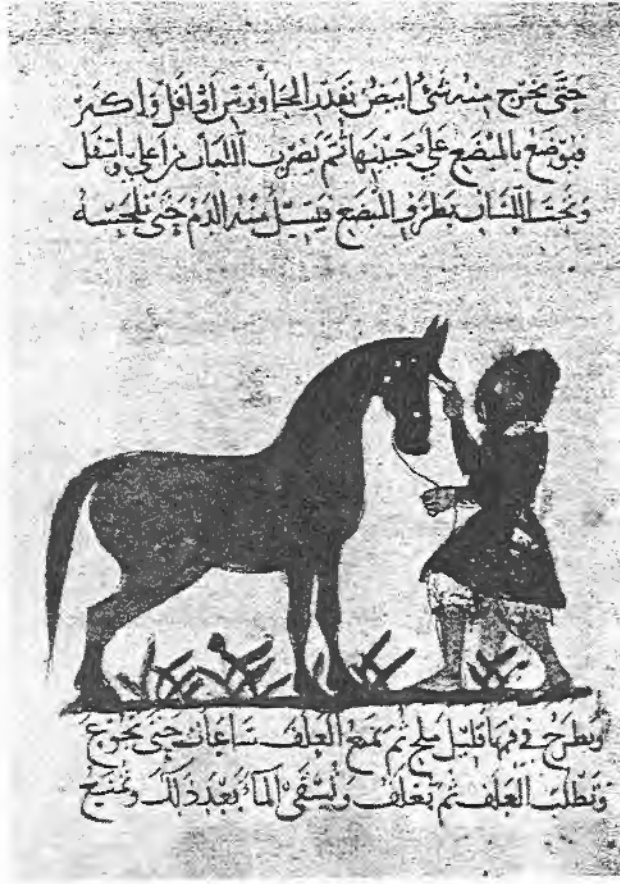 حتى يخرج منه شئ ابيض بقدر الجاورس او اقل او اكبر
فيوضع بالمبضع على جبينها ثم يضرب اللسان من اعلى واسفل
وتحت اللسان بطرف المبضع فيسيل منه الدم حتى تلحسه
ويطرح في فمها قليل ملح ثم تمنع العلف ساعات حتى تجوع
وتطلب العلف ثم تعلف وتسقى الماء بعد ذلك وتمنع